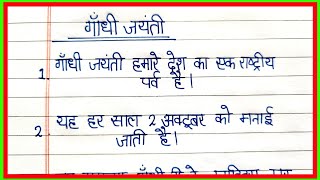 गाँधी जयंती
1. गाँधी जयंती हमारे देश का एक राष्ट्रीय
पर्व है।
2. यह हर साल 2 अक्टूबर को मनाई
जाती है।